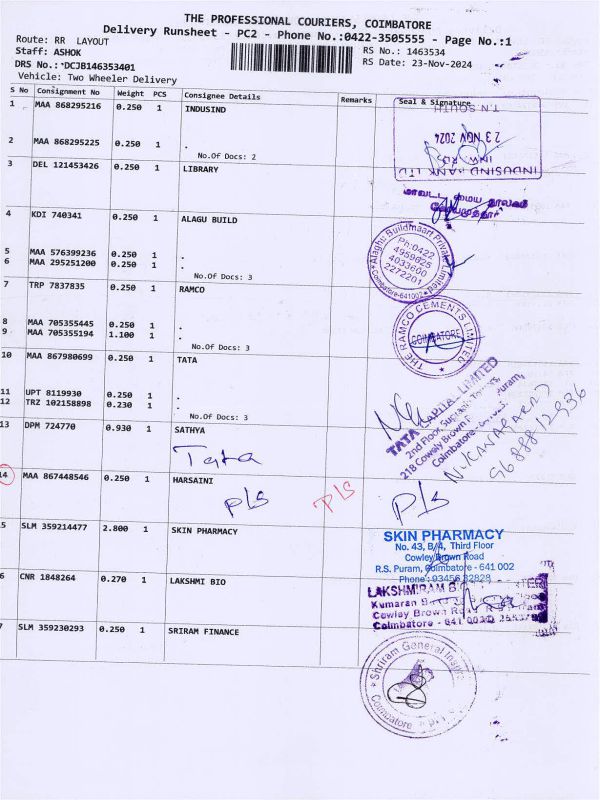 THE PROFESSIONAL COURIERS, COIMBATORE
Delivery Runsheet - PC2 - Phone No.:0422-3505555 - Page No.:1
Route: RR LAYOUT
RS No.: 1463534
Staff: ASHOK
RS Date: 23-Nov-2024
DRS No.: *DCJB146353401
Vehicle: Two Wheeler Delivery
S No Consignment No Weight PCS Consignee Details Remarks Seal & Signature
1 MAA 868295216 0.250 1 INDUSIND
T.N SOUTH
23 NOV 2024
2 MAA 868295225 0.250 1 .
No.Of Docs: 2
INDUSIND BANK LTD
3 DEL 121453426 0.250 1 LIBRARY
மாவட்ட மைய நூலகம்
4 KDI 740341 0.250 1 ALAGU BUILD
5 MAA 576399236 0.250 1 .
6 MAA 295251200 0.250 1 .
No.Of Docs: 3
Alaghu Buildmaart Private Limited
Ph:0422
4959625
4033600
2272201
Coimbatore-641002
7 TRP 7837835 0.250 1 RAMCO
8 MAA 705355445 0.250 1 .
9 MAA 705355194 1.100 1 .
No.Of Docs: 3
THE RAMCO CEMENTS LIMITED
COIMBATORE
10 MAA 867980699 0.250 1 TATA
11 UPT 8119930 0.250 1 .
12 TRZ 102158898 0.230 1 .
No.Of Docs: 3
TATA CAPITAL LIMITED
2nd Floor,
218 Cowley Brown
Coimbatore
13 DPM 724770 0.930 1 SATHYA
Tata
14 MAA 867448546 0.250 1 HARSAINI
Pls Pls Pls
5 SLM 359214477 2.800 1 SKIN PHARMACY
SKIN PHARMACY
No. 43, B/4, Third Floor
Cowley Brown Road
R.S. Puram, Coimbatore - 641 002
Phone : 93456 32828
6 CNR 1848264 0.270 1 LAKSHMI BIO
LAKSHMIRAM
Kumaran
Cowley Brown
Coimbatore - 641 002
7 SLM 359230293 0.250 1 SRIRAM FINANCE
Shriram General
Coimbatore